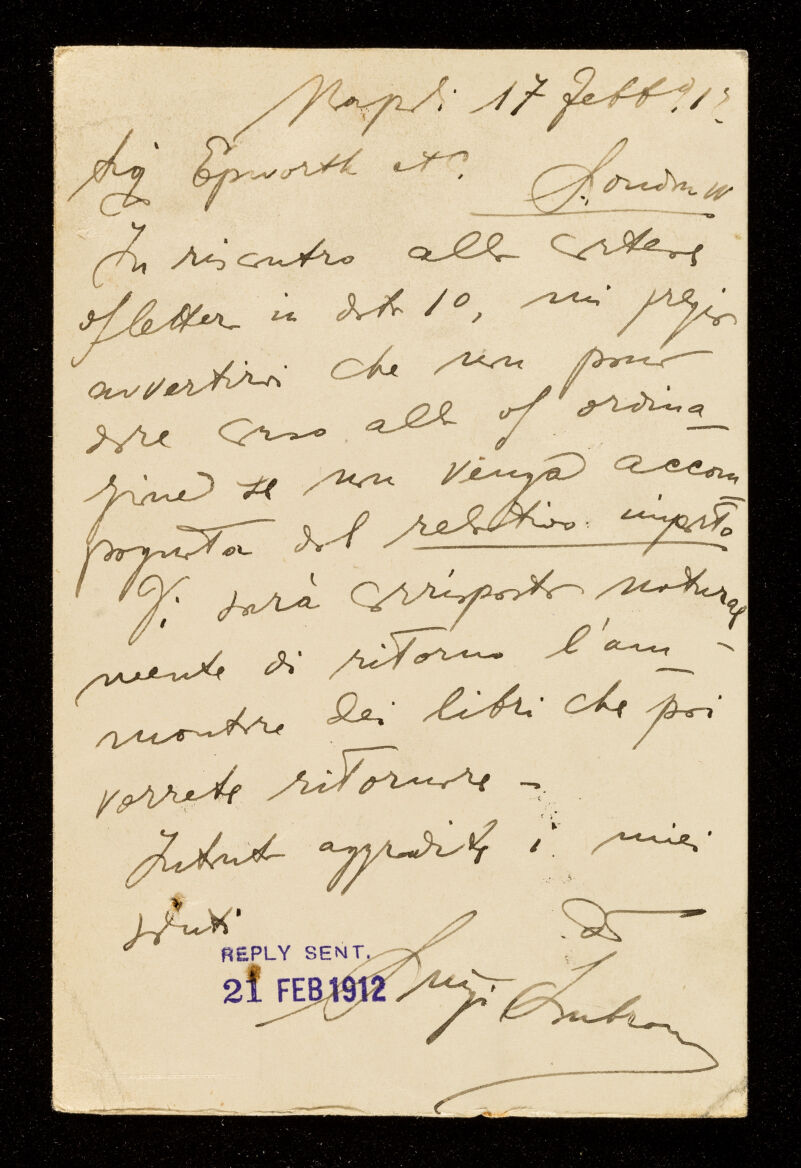 Napoli 17 Febb° 912
Sig Epworth et C°
London W
In riscontro alla cortese
of letter in data 10, mi pregio
avvertirvi che non posso
dare corso alla of ordina
zione se non venga accom
pagnata dal relativo importo
Vi sarà corrisposto natural
mente di ritorno l'am-
montare dei libri che poi
vorrete ritornare -
Intanto aggradite i miei
saluti
Luigi Lubrano
REPLY SENT.
21 FEB 1912